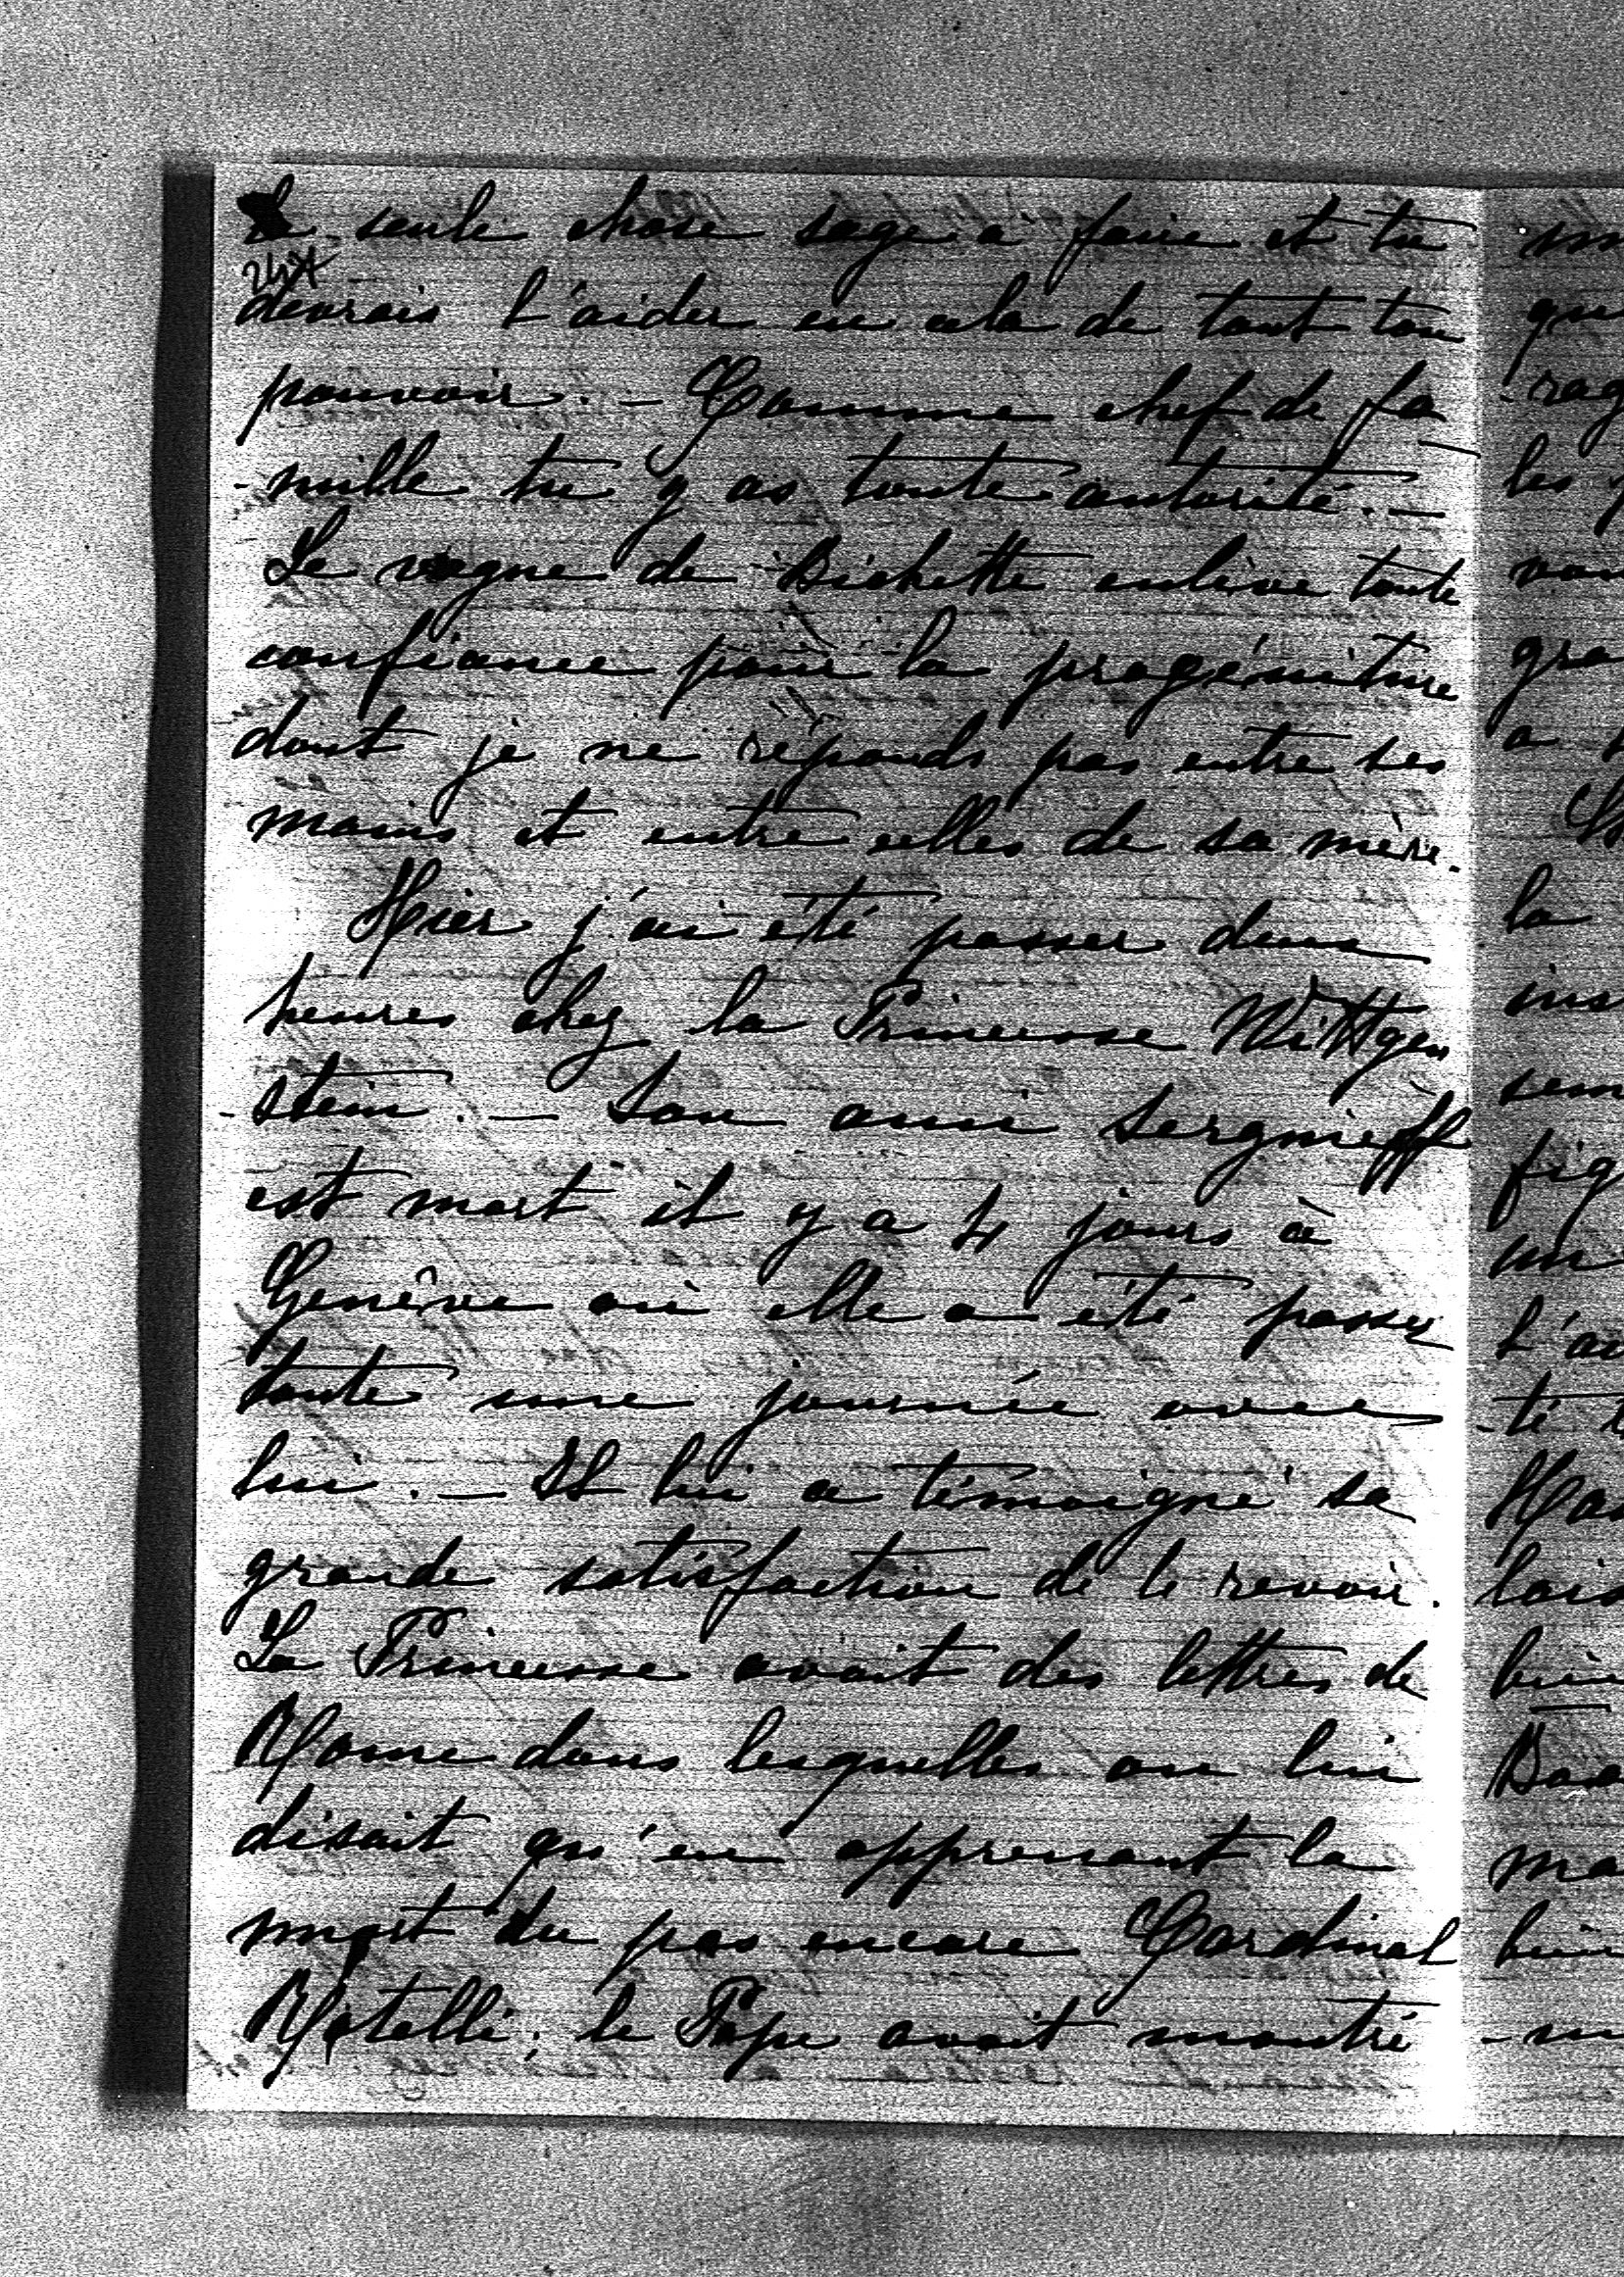 la seule chose sage à faire et tu
devrais l'aider en cela de tout ton
pouvoir. — Comme chef de fa
-mille tu y as toute autorité. —
Le vague de Bichette enlève toute
confiance pour la progéniture
dont je ne réponds pas entre ses
mains et entre celles de sa mère.
Hier j'ai été passer deux
heures chez la Princesse Wittgen
-stein. — Son ami Sergnieff
est mort il y a 4 jours à
Genêve où elle a été passer
toute une journée avec
lui. — Il lui a témoigné sa
grande satisfaction de le revoir.
La Princesse avait des lettres de
Rome dans lesquelles on lui
disait qu'en apprenant la
mort du pas encore Cardinal
Rotelli; le Pape avait montré